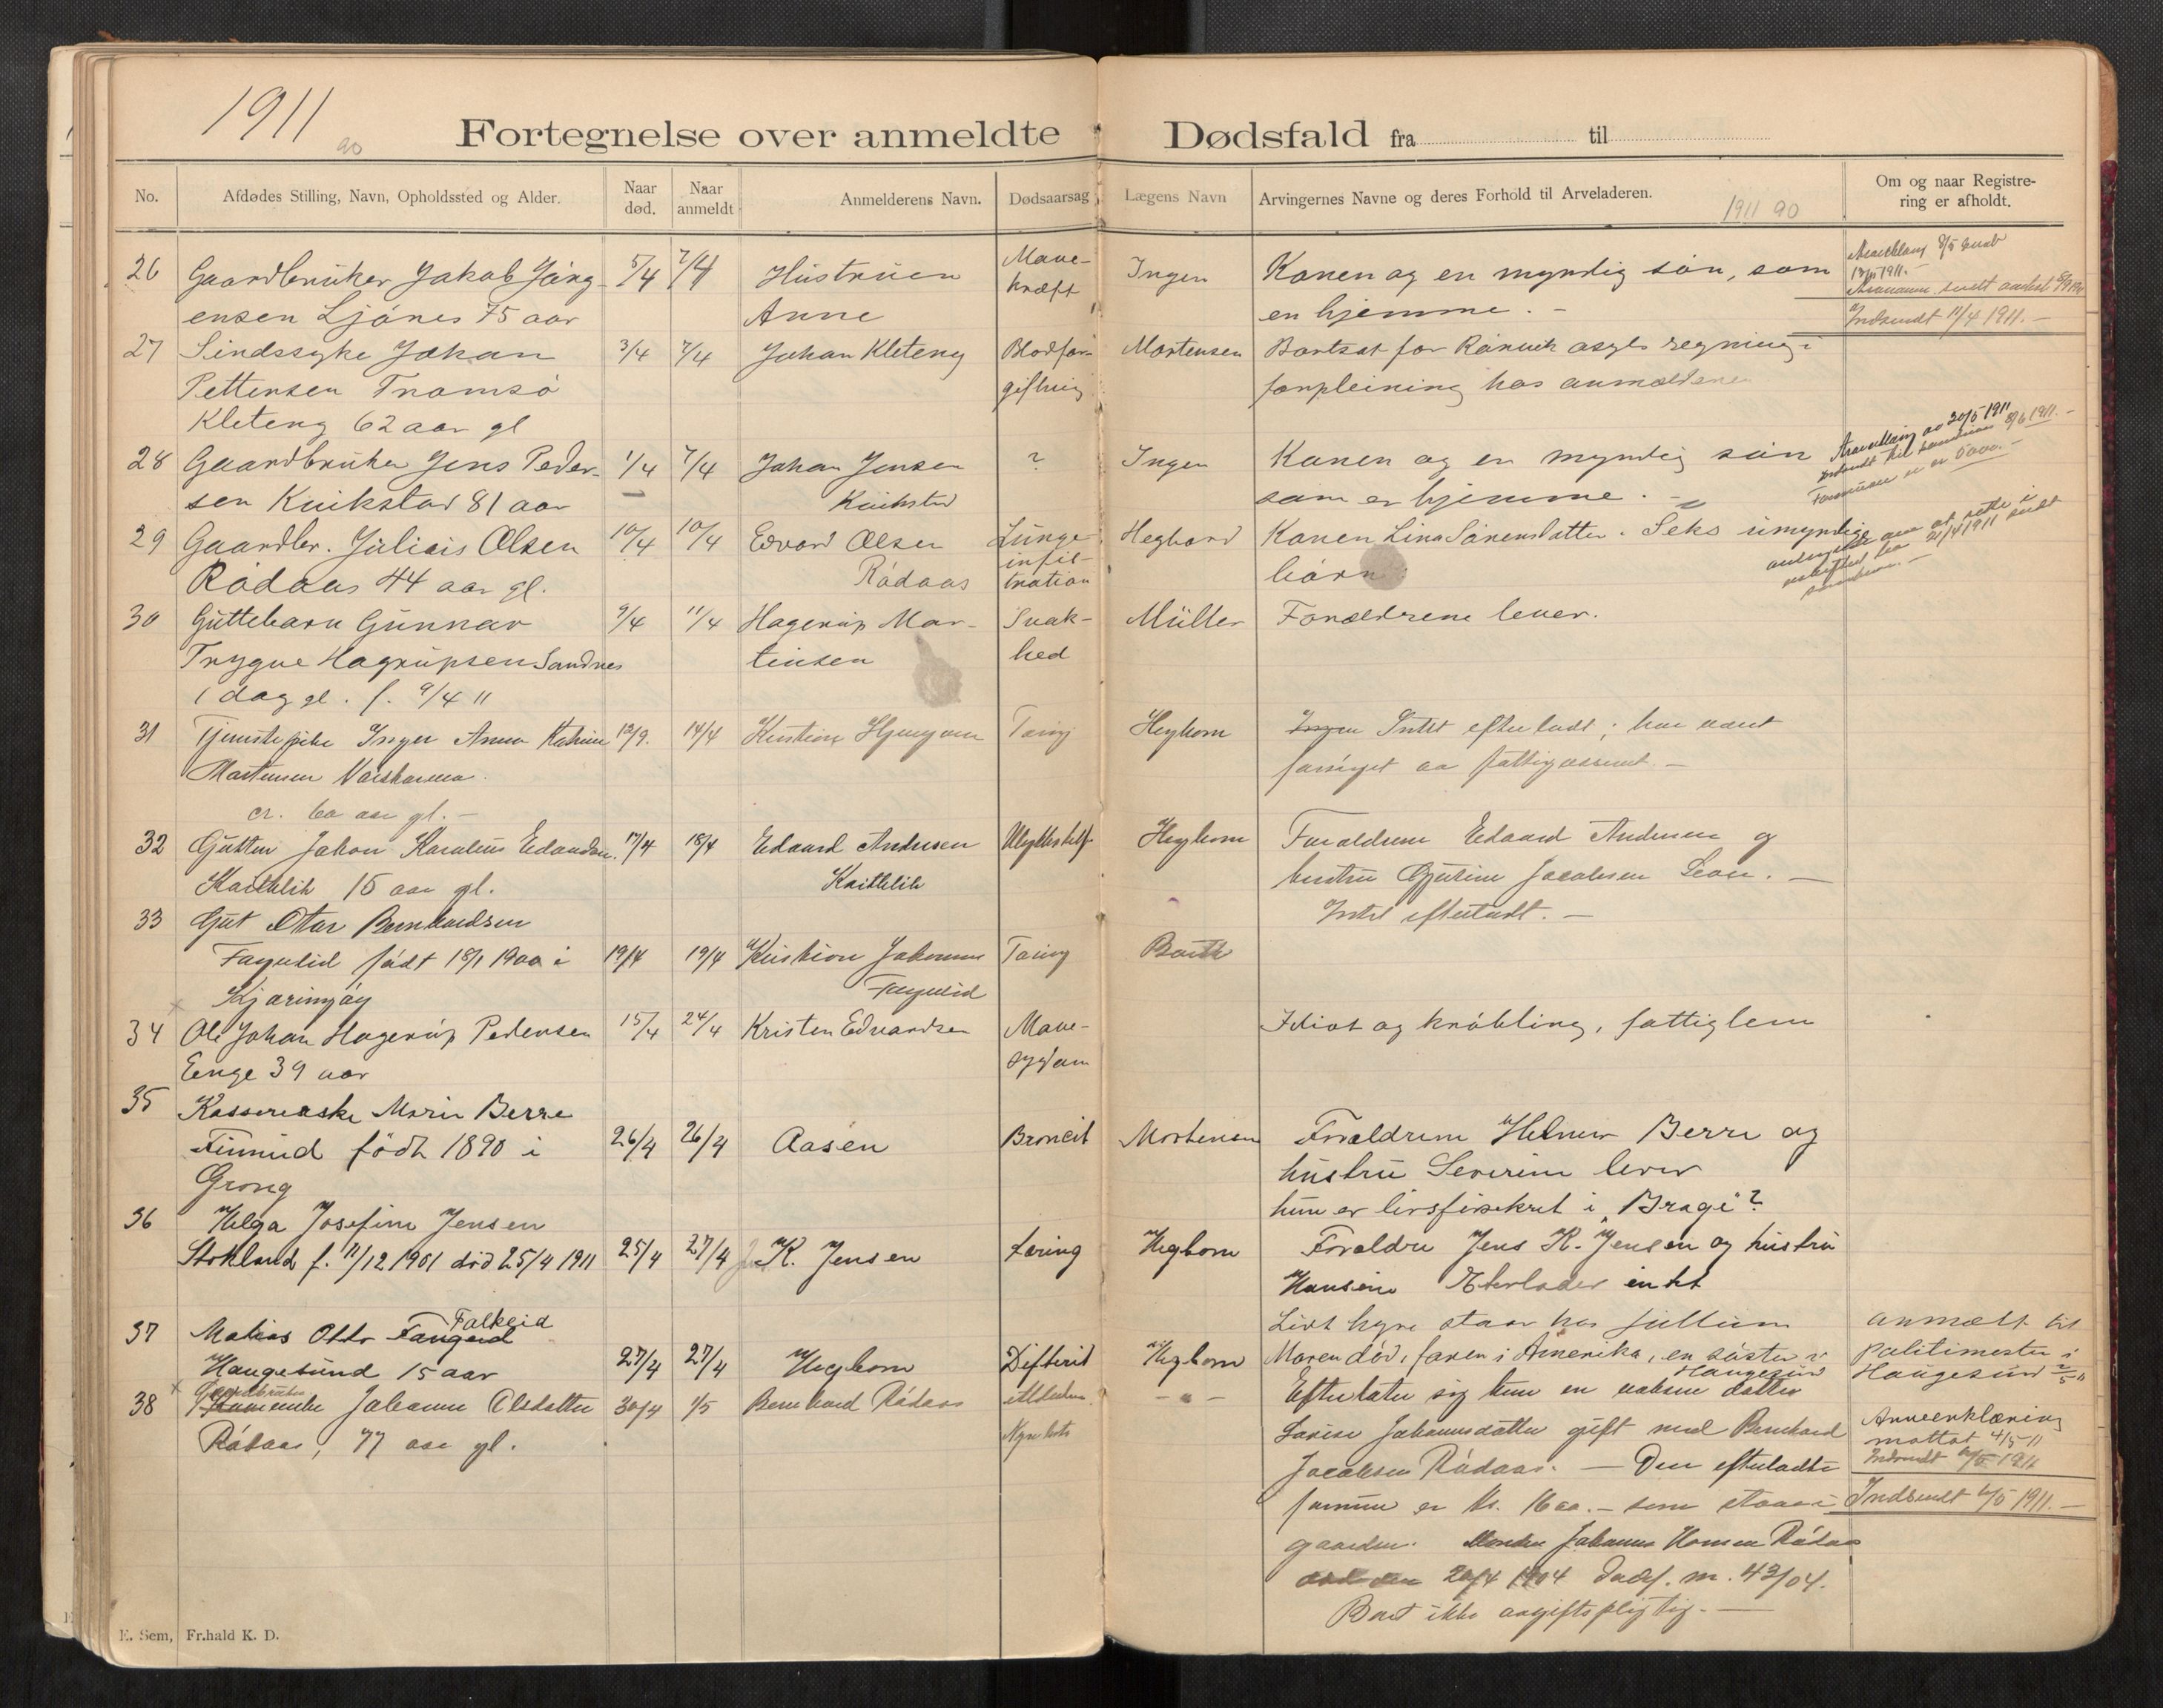 1911
90
Fortegnelse over anmeldte Dødsfald fra til
No.
Afdødes Stilling, Navn, Opholdssted og Alder.
Naar død.
Naar anmeldt
Anmelderens Navn.
Dødsaarsag
Lægens Navn
Arvingernes Navne og deres Forhold til Arveladeren.
1911 90
Om og naar Registre-
ring er afholdt.
26 Gaardbruker Jakob Jörg- 5/4 7/4 Hustruen Mave- Ingen Konen og en myndig sön, som
ensen Ljönes 75 aar Anne kræft en hjemme. -
Indsendt 11/4 1911. -
27 Sindssyke Johan 3/4 7/4 Johan Kleteng Blodfor- Mortensen Bortsat for Rönvik asyls regning i
Pettersen Tromsö giftning forpleining hos anmelderen
Kleteng 62 aar gl
28 Gaardbruker Jens Peder- 1/4 7/4 Johan Jensen ? Ingen Konen og en myndig sön
sen Kvikstad 81 aar Kvikstad som er hjemme. -
20/5 1911
8/6 1911. -
29 Gaardbr. Julius Olsen 10/4 10/4 Edvard Olsen Lunge- Hegbom Konen Lina Sörensdatter. Seks umyndige
Rödaas 44 aar gl. Rödaas infil-
tration börn
21/4 1911
30 Guttebarn Gunnar 9/4 11/4 Hagerup Mar- Svak- Müller Forældrene lever.
Trygve Hagrupsen Sandnes tinsen hed
1 dag gl. f. 9/4 11
31 Tjenstepike Inger Anna Katrine 14/4 Kristian Tæring Hegbom Ingen Intet efterladt; har været
Martinsen forsørget av fattigvæsenet. -
cr. 60 aar gl. -
32 Gutten Johan Karelius Edvardsen. 17/4 18/4 Edvard Andersen Ulykkestilf. Hegbom Forældrene Edvard Andersen og
15 aar gl. hustru Gjertine Jacobsen lever. -
Intet efterladt. -
33 Gut Otar Bernhardsen
Fagerlid födt 18/1 1900 i 19/4 19/4 Kristian Johannes Tæring Barth
Kjæringöy Fagerlid
34 Ole Johan Hagerup Pedersen 15/4 24/4 Kristen Edvardsen Mave- Idiot og kröbling, fattiglem
Eenge 39 aar sygdom
35 Kassererske Marie Berre
Finneid födt 1890 i 26/4 26/4 Aasen Broncit Mortensen Forældrene Helmer Berre og
Grong hustru Severine lever
hun er livsforsikret i "Brage"?
36 Helga Josefine Jensen
Stokland f. 11/12 1901 död 25/4 1911 25/4 27/4 K. Jensen Tæring Hegbom Forældre Jens K. Jensen og hustru
Hansine Efterlader intet
37 Matias Otto Fangeid Falkeid
Haugesund 15 aar 27/4 27/4 Hegbom Difterit Hegbom Litt hyre staar hos Jullum
Moren död, faren i Amerika, en söster i
Haugesund
anmeldt til
politimester i
Haugesund
38 Gaardbruker Johanne Olsdatter 30/4 1/5 Bernhard Rödaas - " - Efterlater sig kun en voksen datter
Rödaas, 77 aar gl.
Lovise Johannesdatter gift med Bernhard
Jacobsen Rödaas. - Den efterladte
formue er kr. 1600. - som staar i
gaarden. Manden Johannes Hansen Rödaas
död den 20/4 1904 Dödsf. nr. 43/04.
Boet ikke avgiftspligtig. -
mottat 4/5-11
Indsendt 6/5 1911
Indsendt 6/5 1911. -
E. Sem, Fr.hald K. D.